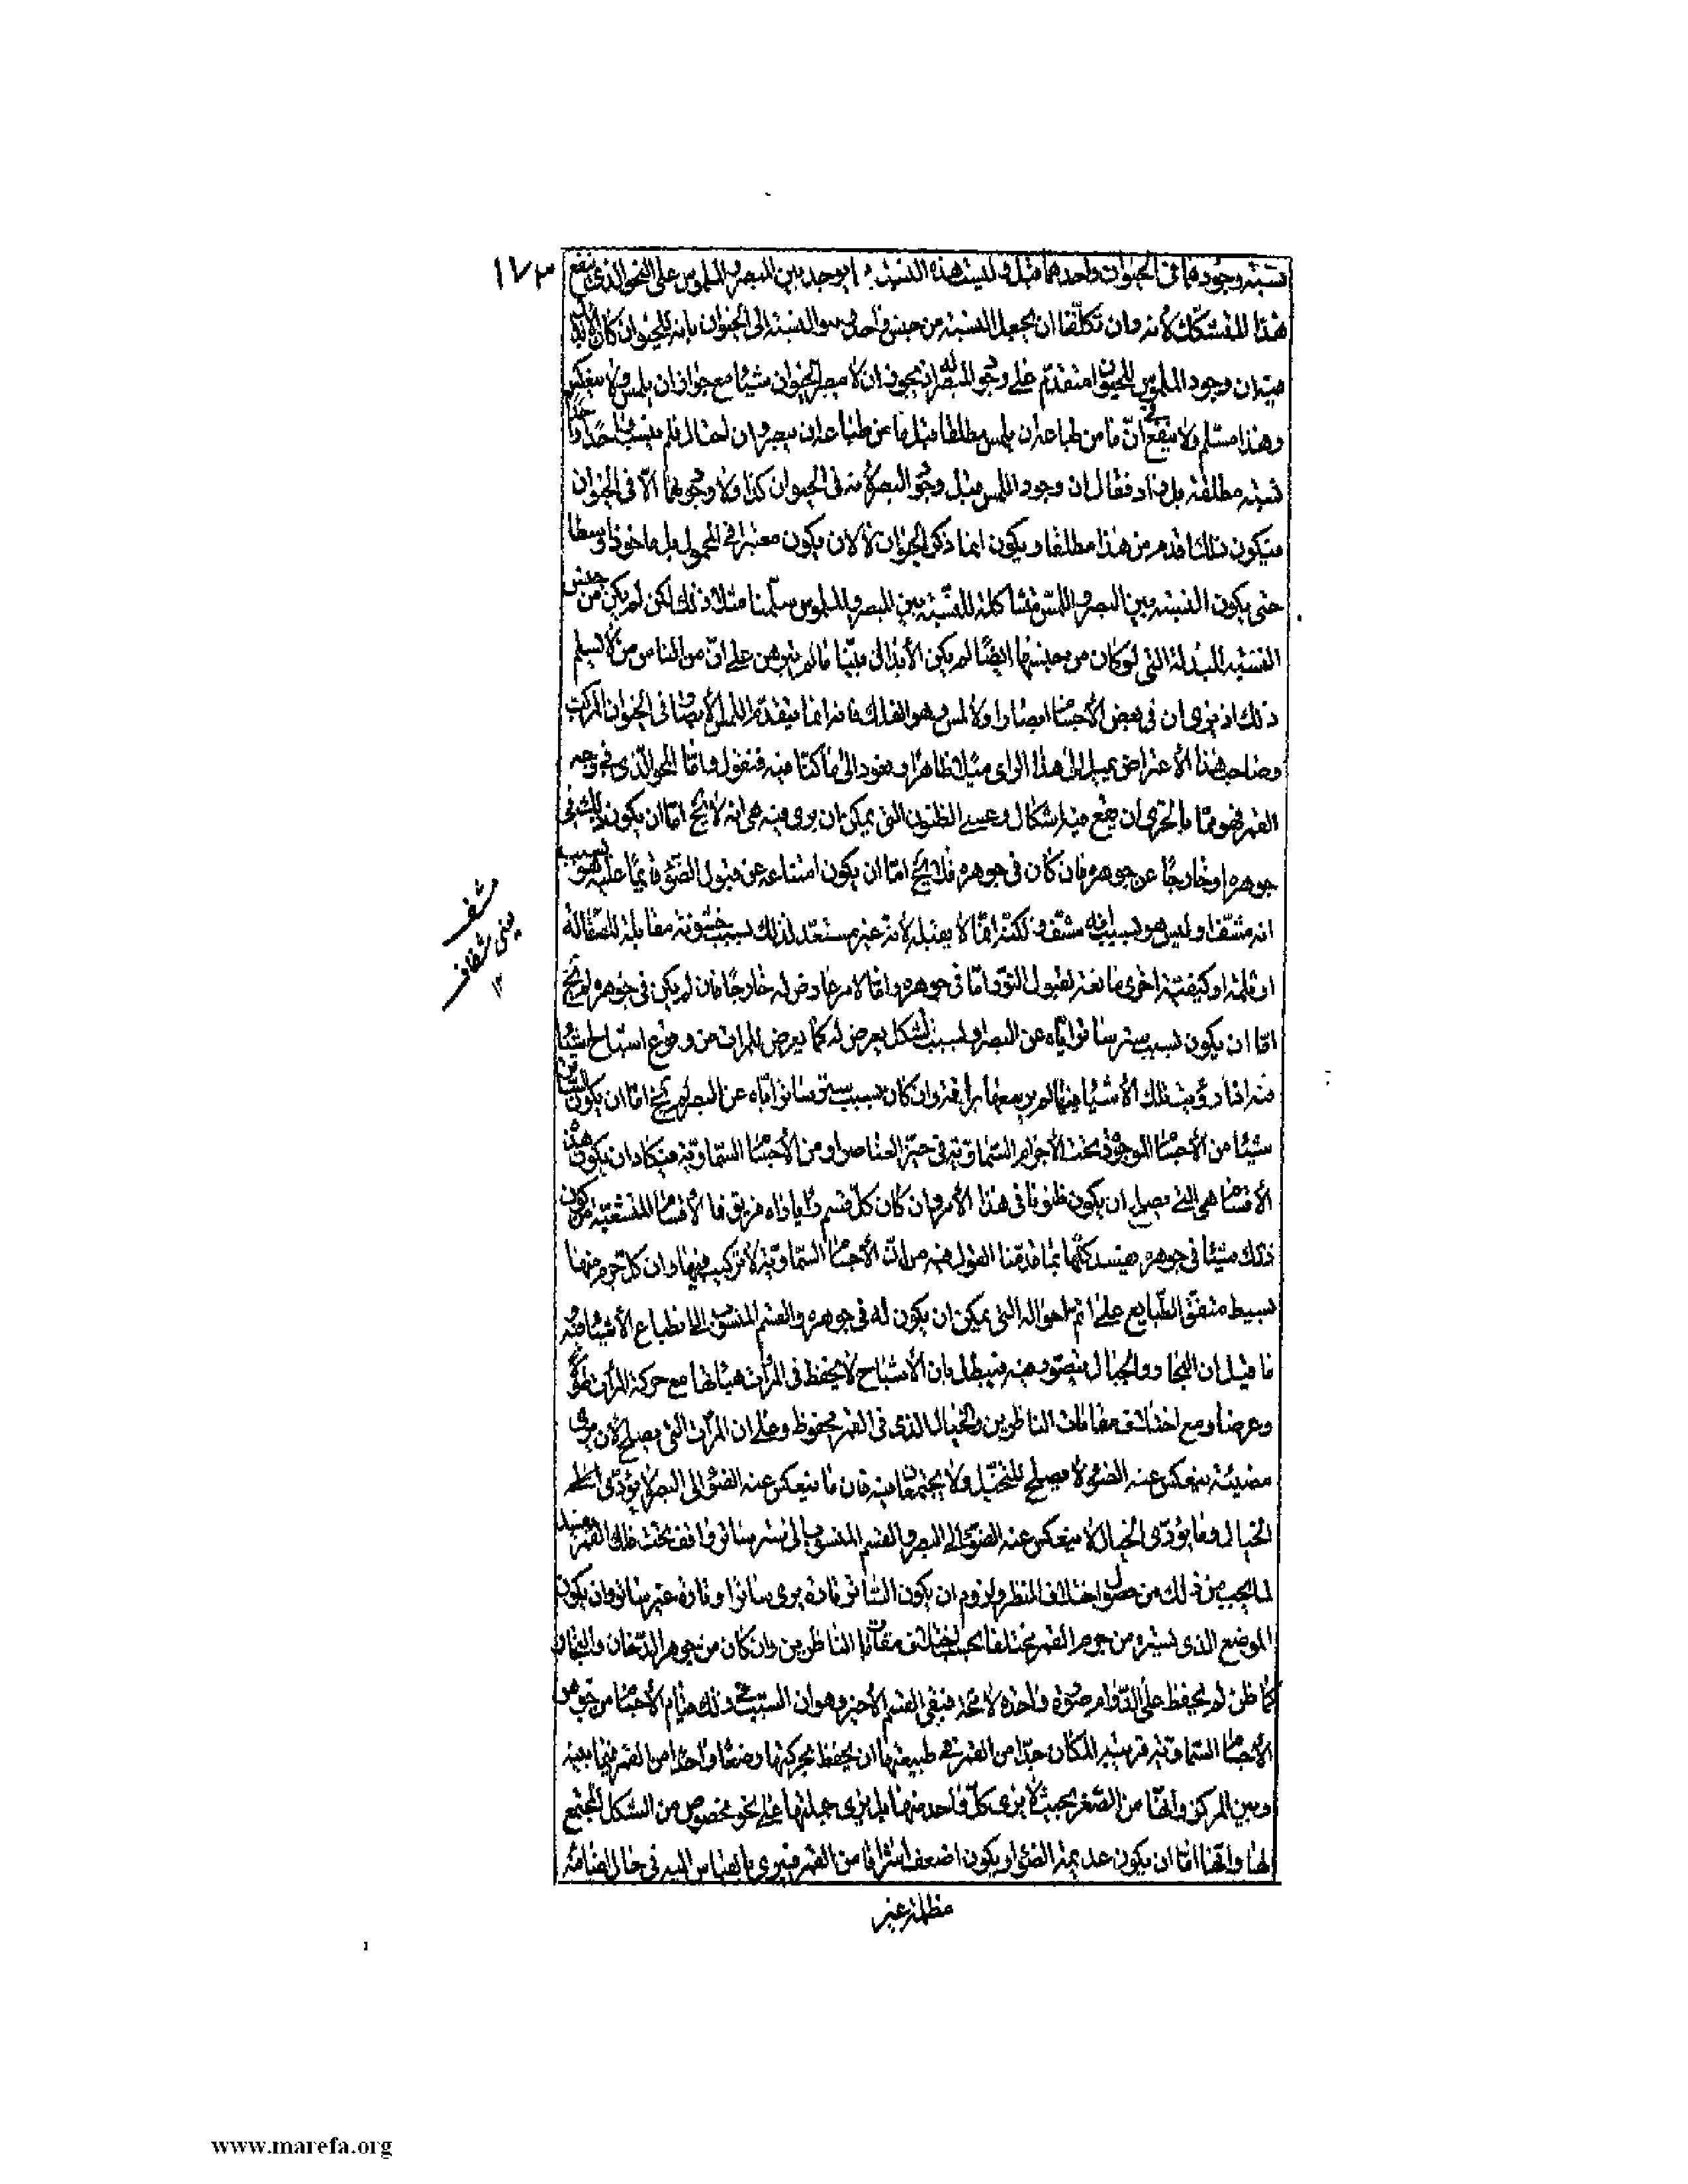 ١٧٣
نسبة وجودهما فى الحيوان واحدهما قبل وليست هذه النسبة مما يوجد بين المبصر والملموس على النحو الذى ينفع
هذا المتشكك لأنه وان تكلفنا ان نجعل النسبة من جنس واحد وهو النسبة الى الحيوان بانه للحيوان كان
ان وجود الملموس للحيوان متقدم على وجود المبصر له اى يجوز ان لا يبصر الحيوان شيئا مع جواز ان يلمس ولا ينعكس
وهذا مسلم ولا ينفع فى ان ما من طباعه ان يلمس مطلقا قبل ما من طباعه ان يبصر وان احتال فلم ينسب
نسبة مطلقة بل زاد فقال ان وجود اللمس قبل وجود البصر لأنه فى الحيوان كذا ولا وجود لهما الا فى الحيوان
فيكون ذلك اقدم من هذا مطلقا ويكون انما ذكر الحيوان لا لان يكون معتبرا فى المحمول بل ماخوذا وسطا
حتى يكون النسبة بين البصر واللمس مشاكلة للنسبة بين المبصر والملموس سلمنا مثلا ذلك لكن لم يكن من جنس
النسبة المبدلة التى لو كان من جنسها ايضا لم يكن الأبدال مبينا ما لم يبرهن على ان من الناس من لا يسلم
ذلك اذ يرى ان فى بعض الأجسام ابصارا ولا لمس وهو الفلك فانه انما يتقدم اللمس الأبصار فى الحيوان المركب
وصاحب هذا الأعتراض يميل الى هذا الراى ميلا ظاهرا ونعود الى ما كنا فيه فنقول واما المحو الذى فى وجه
القمر فهو مما بالحرى ان يقع فيه اشكال وعسى الظنون التى يمكن ان يرى فيه هى انه لا يخ اما ان يكون ذلك لشئ فى
جوهره او خارجا عن جوهره فان كان فى جوهره فلا يخ اما ان يكون امتناعه عن قبول الضوء كما عليه هو بسبب
انه مشف او ليس هو بسبب انه مشف ولكنه انما لا يقبله لأنه غير مستعد لذلك بسبب خشونة مقابلة للصقالة
او ثلمة او كيفية اخرى مانعة لقبول النور اما فى جوهره واما لأمر عارض له خارجا فان لم يكن فى جوهره لم يخ
اما ان يكون بسبب ستر ساتر اياه عن البصر او بسبب تشكل يعرض له كما يعرض للمرآة من وقوع اشباح اشياء
فيه اذا رؤيت تلك الأشياء فيها لم ير معها براقة وان كان بسبب ستر ساتر اياه عن البصر لم يخ اما ان يكون الساتر
شيئا من الأجسام الموجودة تحت الأجرام السماوية فى حيز العناصر او من الأجسام السماوية فيكاد ان يكون هذه
الأقسام هى التى يصلح ان يكون ظنونا فى هذا الأمر وان كان كل قسم رأيا رآه فريق فاما الأقسام المتشعبة من كون
ذلك شيئا فى جوهره فيفسد كلها بما قدمنا القول فيه من ان الأجسام السماوية لا تركيب فيها وان كل جرم منها
بسيط متفق الطبايع على اتم احواله التى يمكن ان يكون له فى جوهره والقسم المنسوب الى انطباع الأشياء فيه
ما قيل ان البحار والجبال يتصور فيه يبطل بان الأشباح لا يحفظ فى المرآة هيأتها مع حركة المرآة طولا
وعرضا ومع اختلاف مقامات الناظرين والخيال الذى فى القمر محفوظ وعلى ان المرآة التى يصلح لأن يرى
مضيئة ينعكس عنه الضوء لا يصلح للتخيل ولا يجتمعان فيه فان ما ينعكس عنه الضوء الى البصر لا يؤدى
الخيال وما يؤدى الخيال لا ينعكس عنه الضوء الى البصر والقسم المنسوب الى ستر ساتر واقف تحت فلك القمر يفسد
لما يجب من ذلك من حصول اختلاف المنظر ولزوم ان يكون الساتر تارة يرى ساترا وتارة غير ساتر وان يكون
الموضع الذى يستره من جرم القمر مختلفا بحسب اختلاف مقامات الناظرين وان كان من جوهر الدخان والبخار
كما ظن لم يحفظ على الدوام صورة واحدة لا محة فبقى القسم الأخير وهو ان السبب فى ذلك قيام الأجسام من جوهر
الأجسام السماوية قريبة المكان جدا من القمر فى طبيعتها ان يحفظ بحركتها وضعا واحدا من القمر فيما بينه
وبين المركز وانها من الصغر بحيث لا يرى كل واحد منها بل يرى جملتها على نحو مخصوص من الشكل المجتمع
لها وانها اما ان يكون عديمة الضوء او يكون اضعف اشراقا من القمر فيرى بالقياس اليه فى حال اضائته
مظلمة غير
مشف
يعنى شفاف
١٢
www.marefa.org